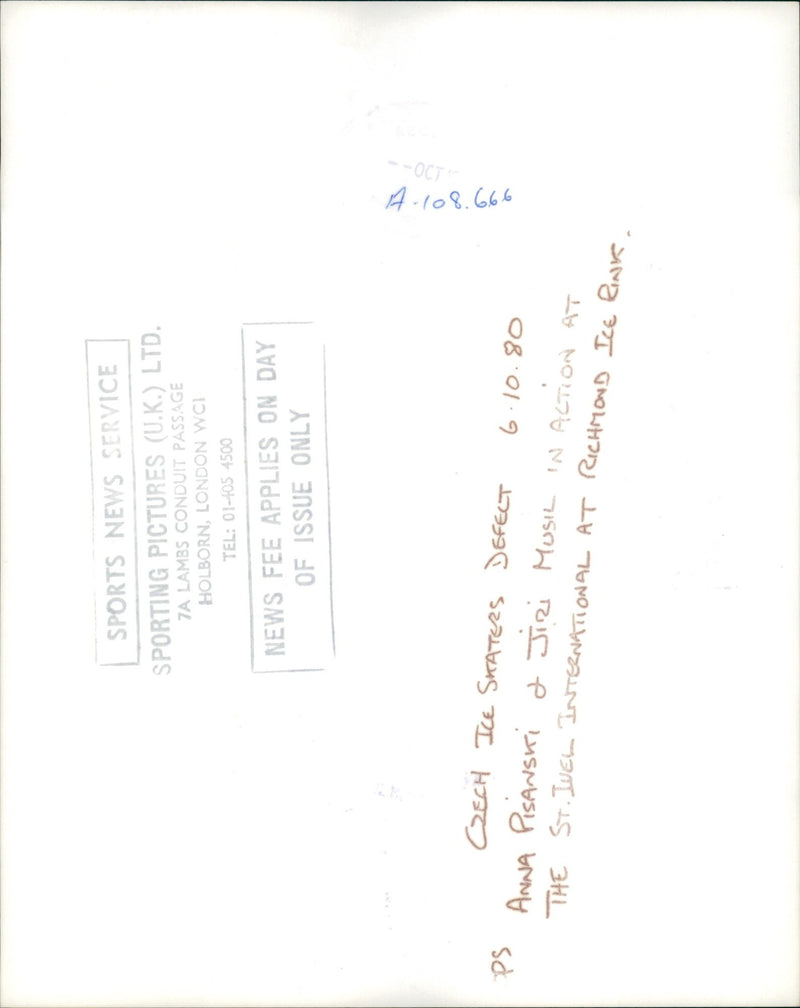 --OCT
A-108.666
SPORTS NEWS SERVICE
SPORTING PICTURES (U.K.) LTD.
7A LAMBS CONDUIT PASSAGE
HOLBORN, LONDON WC1
TEL: 01-405 4500
NEWS FEE APPLIES ON DAY
OF ISSUE ONLY
CZECH ICE SKATERS DEFECT 6.10.80
PS ANNA PISANSKI & JIRI MUSIL IN ACTION AT
THE ST. IVEL INTERNATIONAL AT RICHMOND ICE RINK.